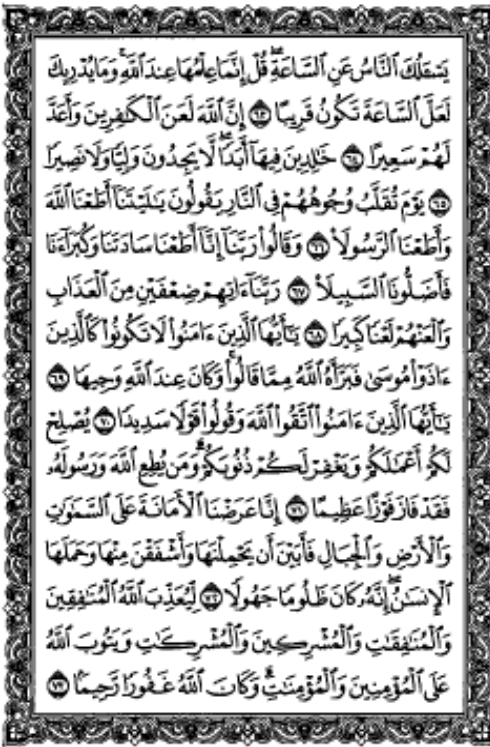 يَسْـَٔلُكَ ٱلنَّاسُ عَنِ ٱلسَّاعَةِۖ قُلْ إِنَّمَا عِلْمُهَا عِندَ ٱللَّهِۚ وَمَا يُدْرِيكَ
لَعَلَّ ٱلسَّاعَةَ تَكُونُ قَرِيبًا ٦٣ إِنَّ ٱللَّهَ لَعَنَ ٱلْكَـٰفِرِينَ وَأَعَدَّ
لَهُمْ سَعِيرًا ٦٤ خَـٰلِدِينَ فِيهَآ أَبَدًاۖ لَّا يَجِدُونَ وَلِيًّا وَلَا نَصِيرًا
٦٥ يَوْمَ تُقَلَّبُ وُجُوهُهُمْ فِى ٱلنَّارِ يَقُولُونَ يَـٰلَيْتَنَآ أَطَعْنَا ٱللَّهَ
وَأَطَعْنَا ٱلرَّسُولَا۠ ٦٦ وَقَالُوا۟ رَبَّنَآ إِنَّآ أَطَعْنَا سَادَتَنَا وَكُبَرَآءَنَا
فَأَضَلُّونَا ٱلسَّبِيلَا۠ ٦٧ رَبَّنَآ ءَاتِهِمْ ضِعْفَيْنِ مِنَ ٱلْعَذَابِ
وَٱلْعَنْهُمْ لَعْنًا كَبِيرًا ٦٨ يَـٰٓأَيُّهَا ٱلَّذِينَ ءَامَنُوا۟ لَا تَكُونُوا۟ كَٱلَّذِينَ
ءَاذَوْا۟ مُوسَىٰ فَبَرَّأَهُ ٱللَّهُ مِمَّا قَالُوا۟ۚ وَكَانَ عِندَ ٱللَّهِ وَجِيهًا ٦٩
يَـٰٓأَيُّهَا ٱلَّذِينَ ءَامَنُوا۟ ٱتَّقُوا۟ ٱللَّهَ وَقُولُوا۟ قَوْلًا سَدِيدًا ٧٠ يُصْلِحْ
لَكُمْ أَعْمَـٰلَكُمْ وَيَغْفِرْ لَكُمْ ذُنُوبَكُمْۗ وَمَن يُطِعِ ٱللَّهَ وَرَسُولَهُۥ
فَقَدْ فَازَ فَوْزًا عَظِيمًا ٧١ إِنَّا عَرَضْنَا ٱلْأَمَانَةَ عَلَى ٱلسَّمَـٰوَٰتِ
وَٱلْأَرْضِ وَٱلْجِبَالِ فَأَبَيْنَ أَن يَحْمِلْنَهَا وَأَشْفَقْنَ مِنْهَا وَحَمَلَهَا
ٱلْإِنسَـٰنُۖ إِنَّهُۥ كَانَ ظَلُومًا جَهُولًا ٧٢ لِّيُعَذِّبَ ٱللَّهُ ٱلْمُنَـٰفِقِينَ
وَٱلْمُنَـٰفِقَـٰتِ وَٱلْمُشْرِكِينَ وَٱلْمُشْرِكَـٰتِ وَيَتُوبَ ٱللَّهُ
عَلَى ٱلْمُؤْمِنِينَ وَٱلْمُؤْمِنَـٰتِۗ وَكَانَ ٱللَّهُ غَفُورًا رَّحِيمًا ٧٣